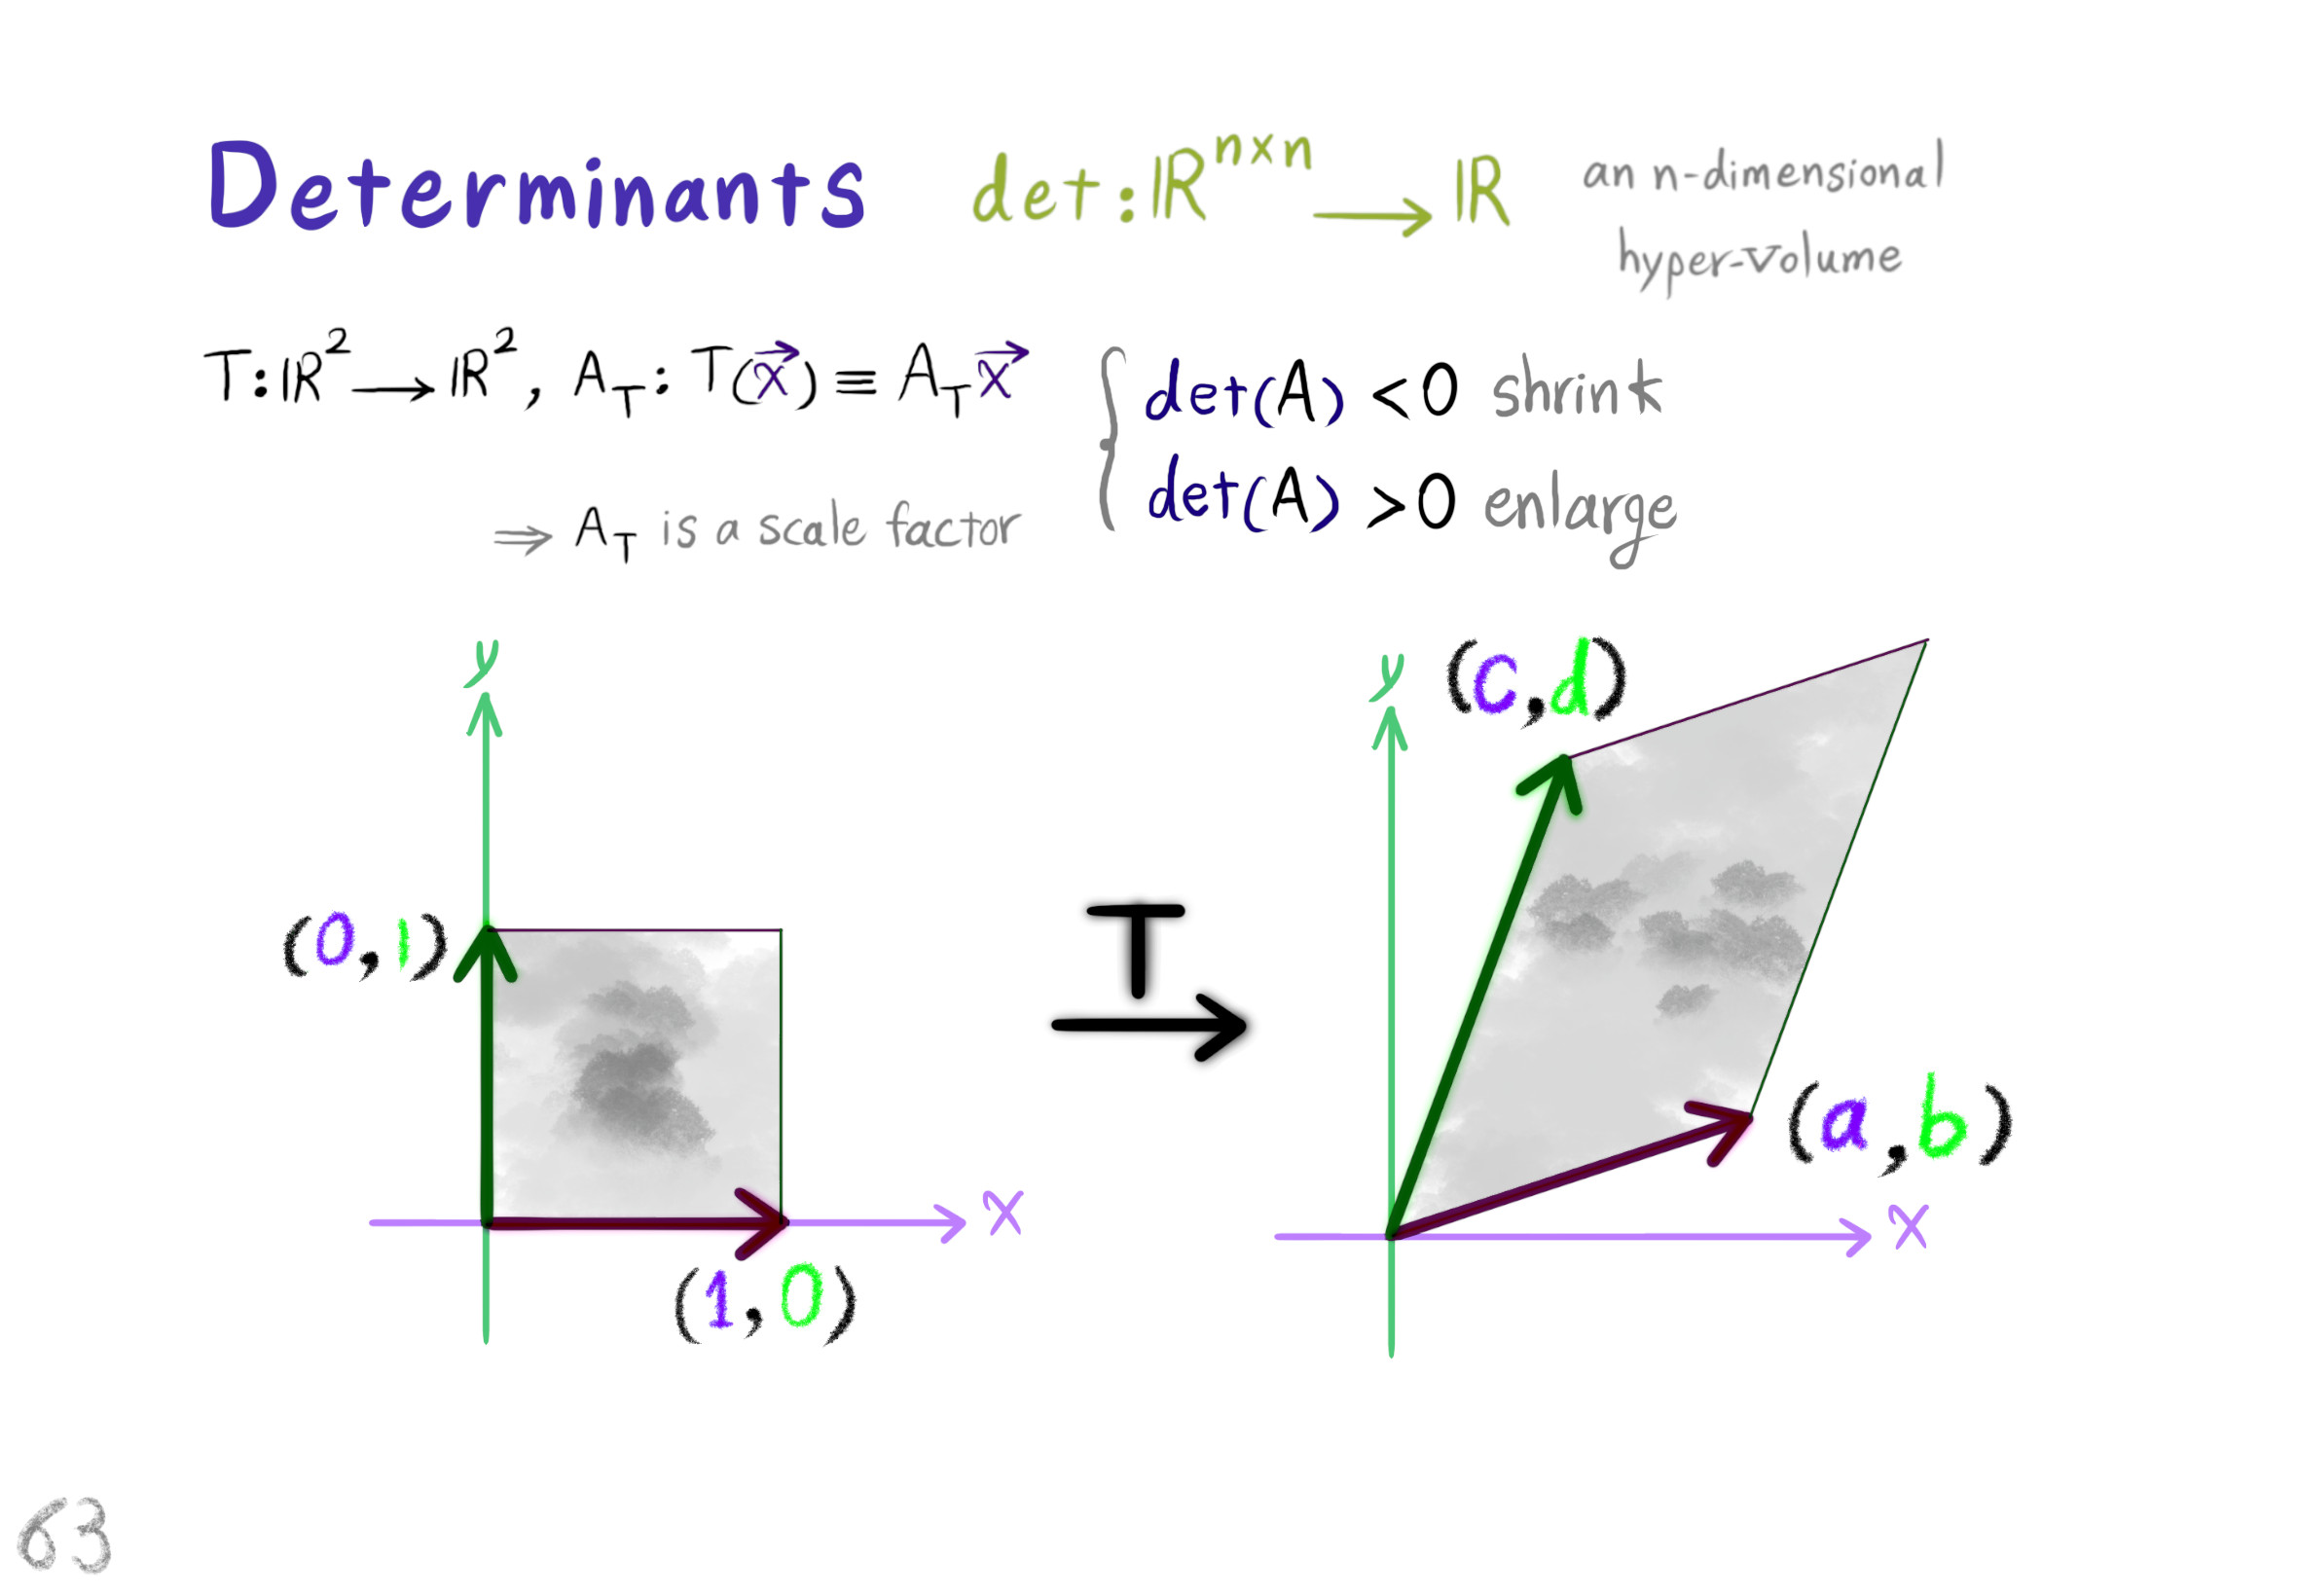 Determinants det:ℝⁿˣⁿ → ℝ an n-dimensional
hyper-volume
T:ℝ² → ℝ², A_T: T(x⃗) ≡ A_T x⃗
⇒ A_T is a scale factor
{ det(A) <0 shrink
det(A) >0 enlarge
y
(0,1)
x
(1,0)
T
→
y
(c,d)
(a,b)
x
63